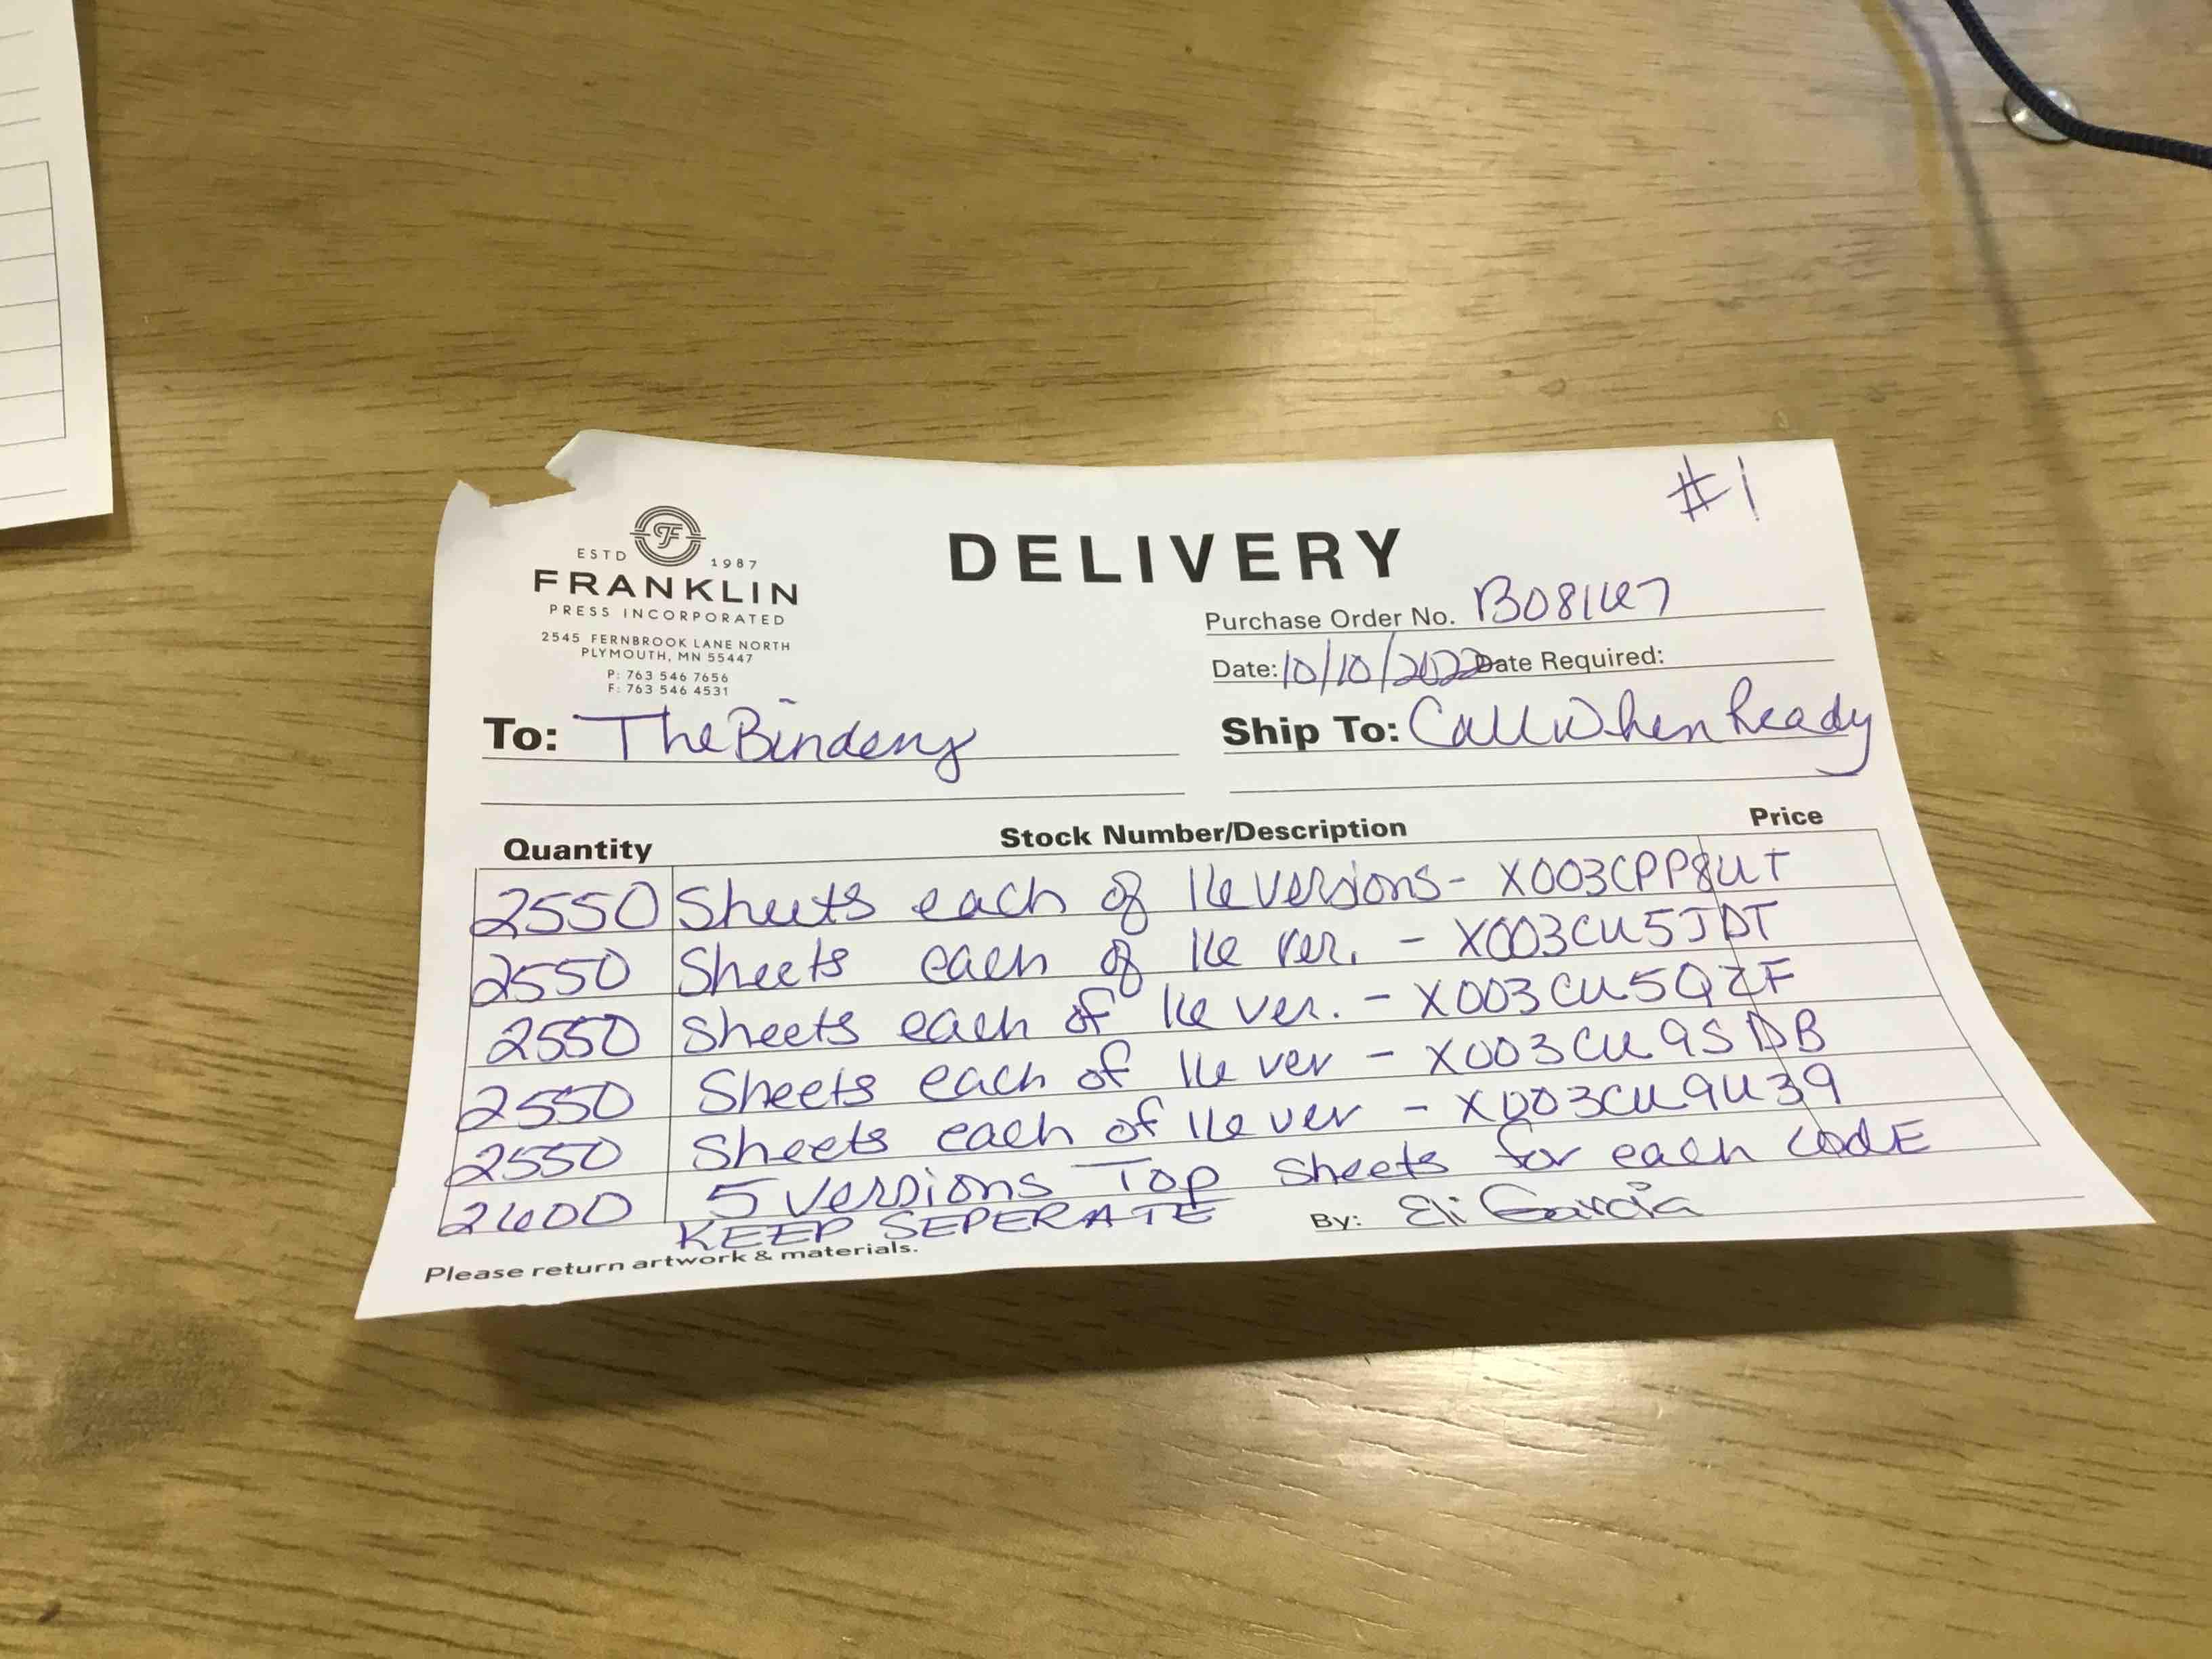 #1
ESTD 1987
FRANKLIN
PRESS INCORPORATED
2545 FERNBROOK LANE NORTH
PLYMOUTH, MN 55447
P: 763 546 7656
F: 763 546 4531
DELIVERY
Purchase Order No. B081667
Date: 10/10/2022 Date Required:
To: The Bindery
Ship To: Call When Ready
Quantity Stock Number/Description Price
2550 Sheets each of 16 versions - X003CPP8UT
2550 Sheets each of 16 ver. - X003CU5JDT
2550 Sheets each of 16 ver. - X003CU5QZF
2550 Sheets each of 16 ver - X003CU9SDB
2550 Sheets each of 16 ver - X003CU9U39
2600 5 versions Top Sheets for each CODE
KEEP SEPERATE
By: Eli Garcia
Please return artwork & materials.